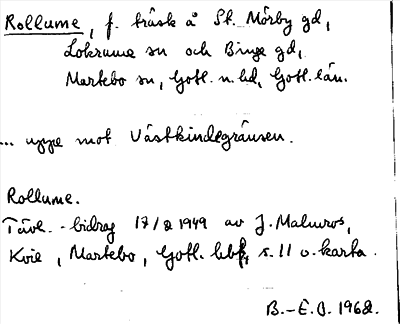 Rollume, f. träsk å St. Mörby gd,
Lokrume sn och Binge gd,
Martebo sn, Gotl. n. hd, Gotl. län.
... uppe mot Västkindegränsen.
Rollume.
Tävl.-bidrag 17/2 1949 av J. Malmros,
Kvie, Martebo, Gotl. s. 11 o. karta.
B.-E.O. 1962.